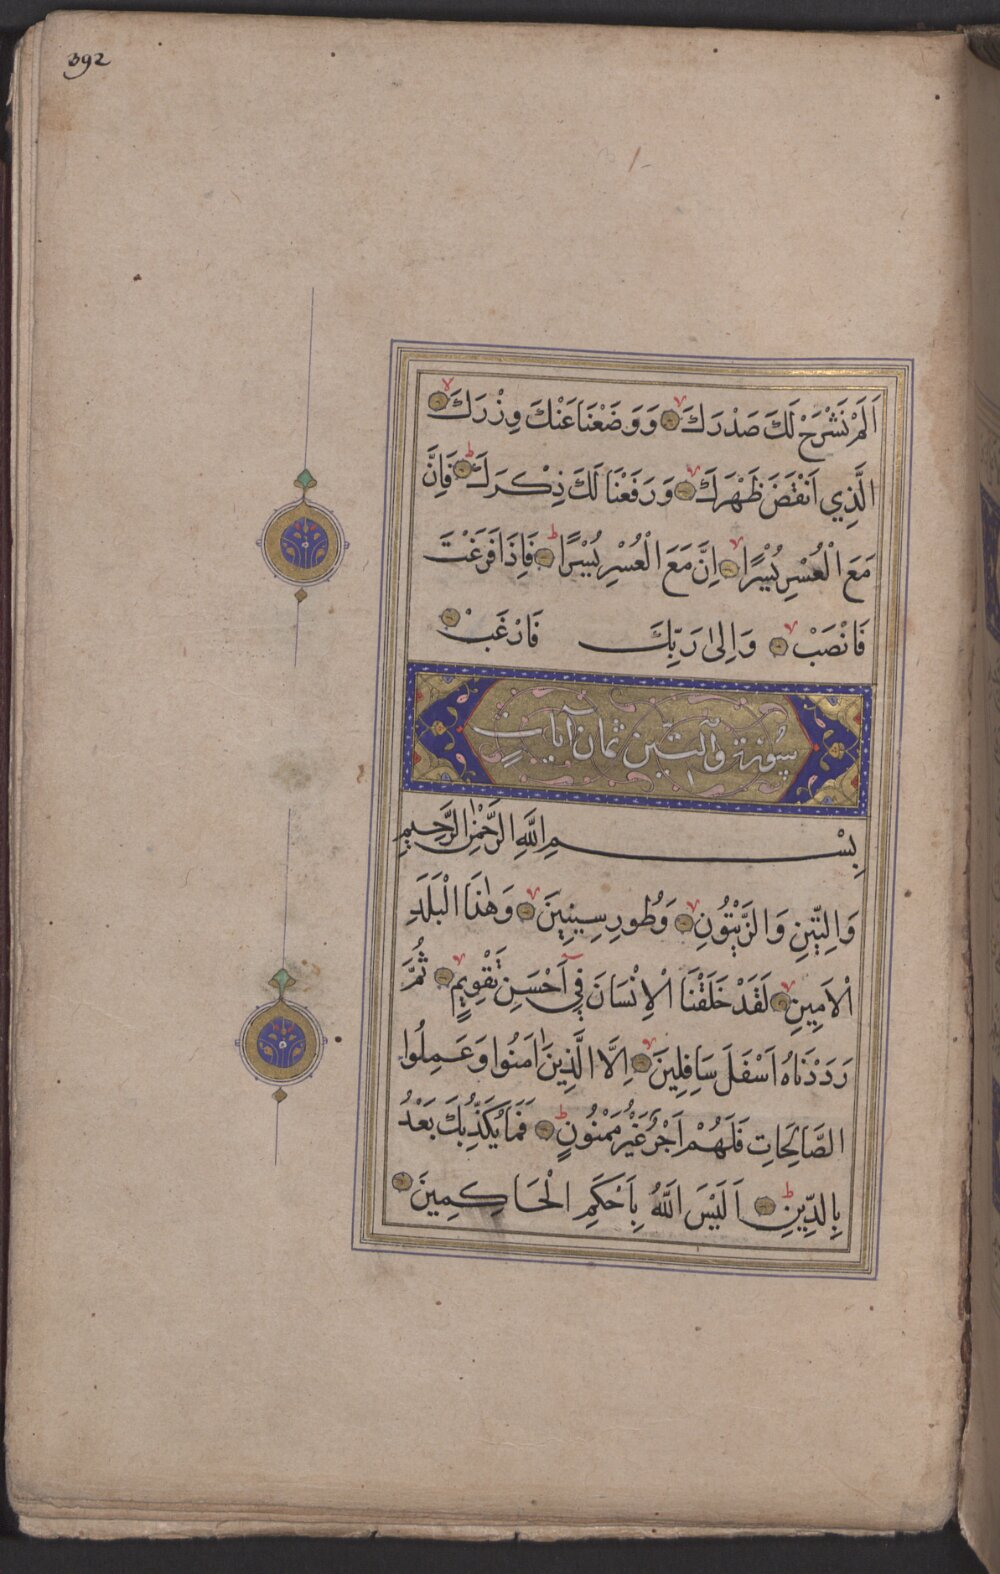 392
اَلَمْ نَشْرَحْ لَكَ صَدْرَكَ وَوَضَعْنَا عَنْكَ وِزْرَكَ
الَّذِي اَنْقَضَ ظَهْرَكَ وَرَفَعْنَا لَكَ ذِكْرَكَ فَاِنَّ
مَعَ الْعُسْرِ يُسْرًا اِنَّ مَعَ الْعُسْرِ يُسْرًا فَاِذَا فَرَغْتَ
فَانْصَبْ وَاِلىٰ رَبِّكَ فَارْغَبْ
سورة والتين ثمان آيات
بِسْمِ اللَّهِ الرَّحْمٰنِ الرَّحِيمِ
وَالتِّينِ وَالزَّيْتُونِ وَطُورِ سِينِينَ وَهٰذَا الْبَلَدِ
الْاَمِينِ لَقَدْ خَلَقْنَا الْاِنْسَانَ فِي اَحْسَنِ تَقْوِيمٍ ثُمَّ
رَدَدْنَاهُ اَسْفَلَ سَافِلِينَ اِلَّا الَّذِينَ اٰمَنُوا وَعَمِلُوا
الصَّالِحَاتِ فَلَهُمْ اَجْرٌ غَيْرُ مَمْنُونٍ فَمَا يُكَذِّبُكَ بَعْدُ
بِالدِّينِ اَلَيْسَ اللَّهُ بِاَحْكَمِ الْحَاكِمِينَ